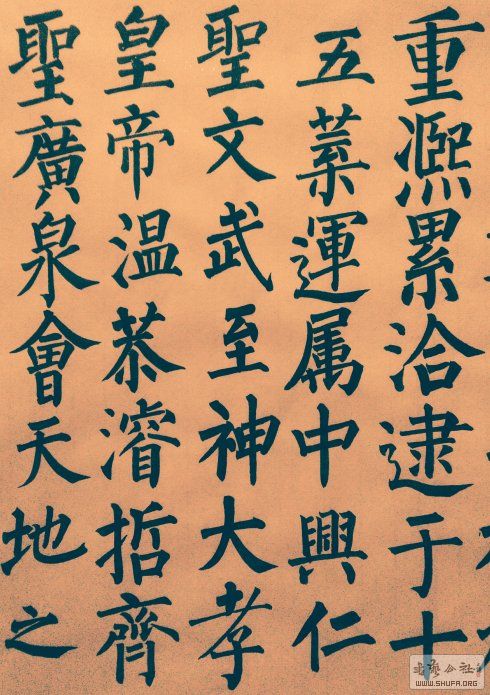 重熈累洽逮于十
五葉運属中興仁
聖文武至神大孝
皇帝温恭濬哲齊
聖廣泉會天地之
WWW.SHUFA.ORG